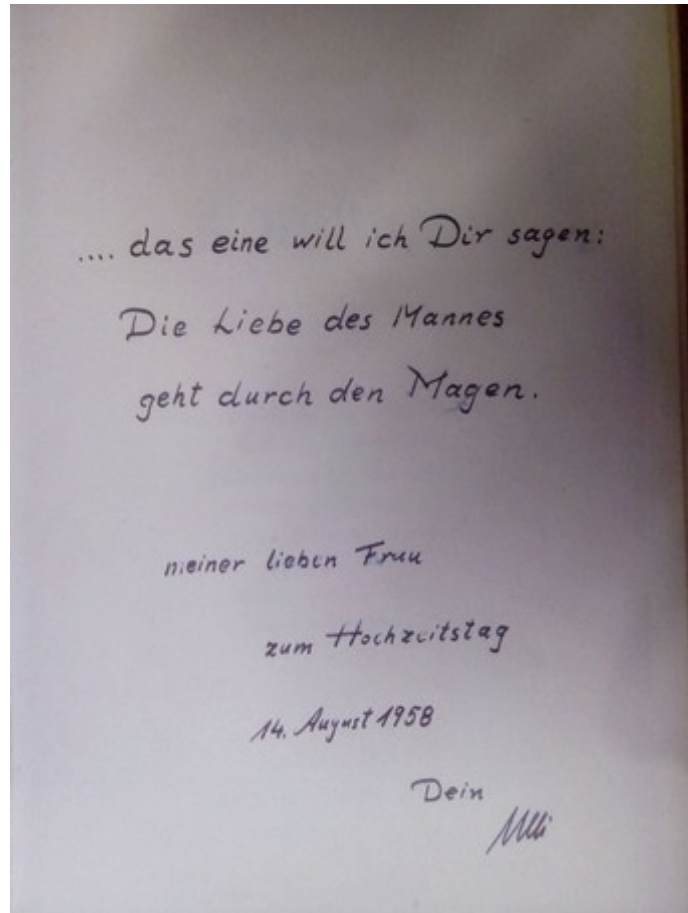 .... das eine will ich Dir sagen:
Die Liebe des Mannes
geht durch den Magen.
meiner lieben Frau
zum Hochzeitstag
14. August 1958
Dein
Ulli